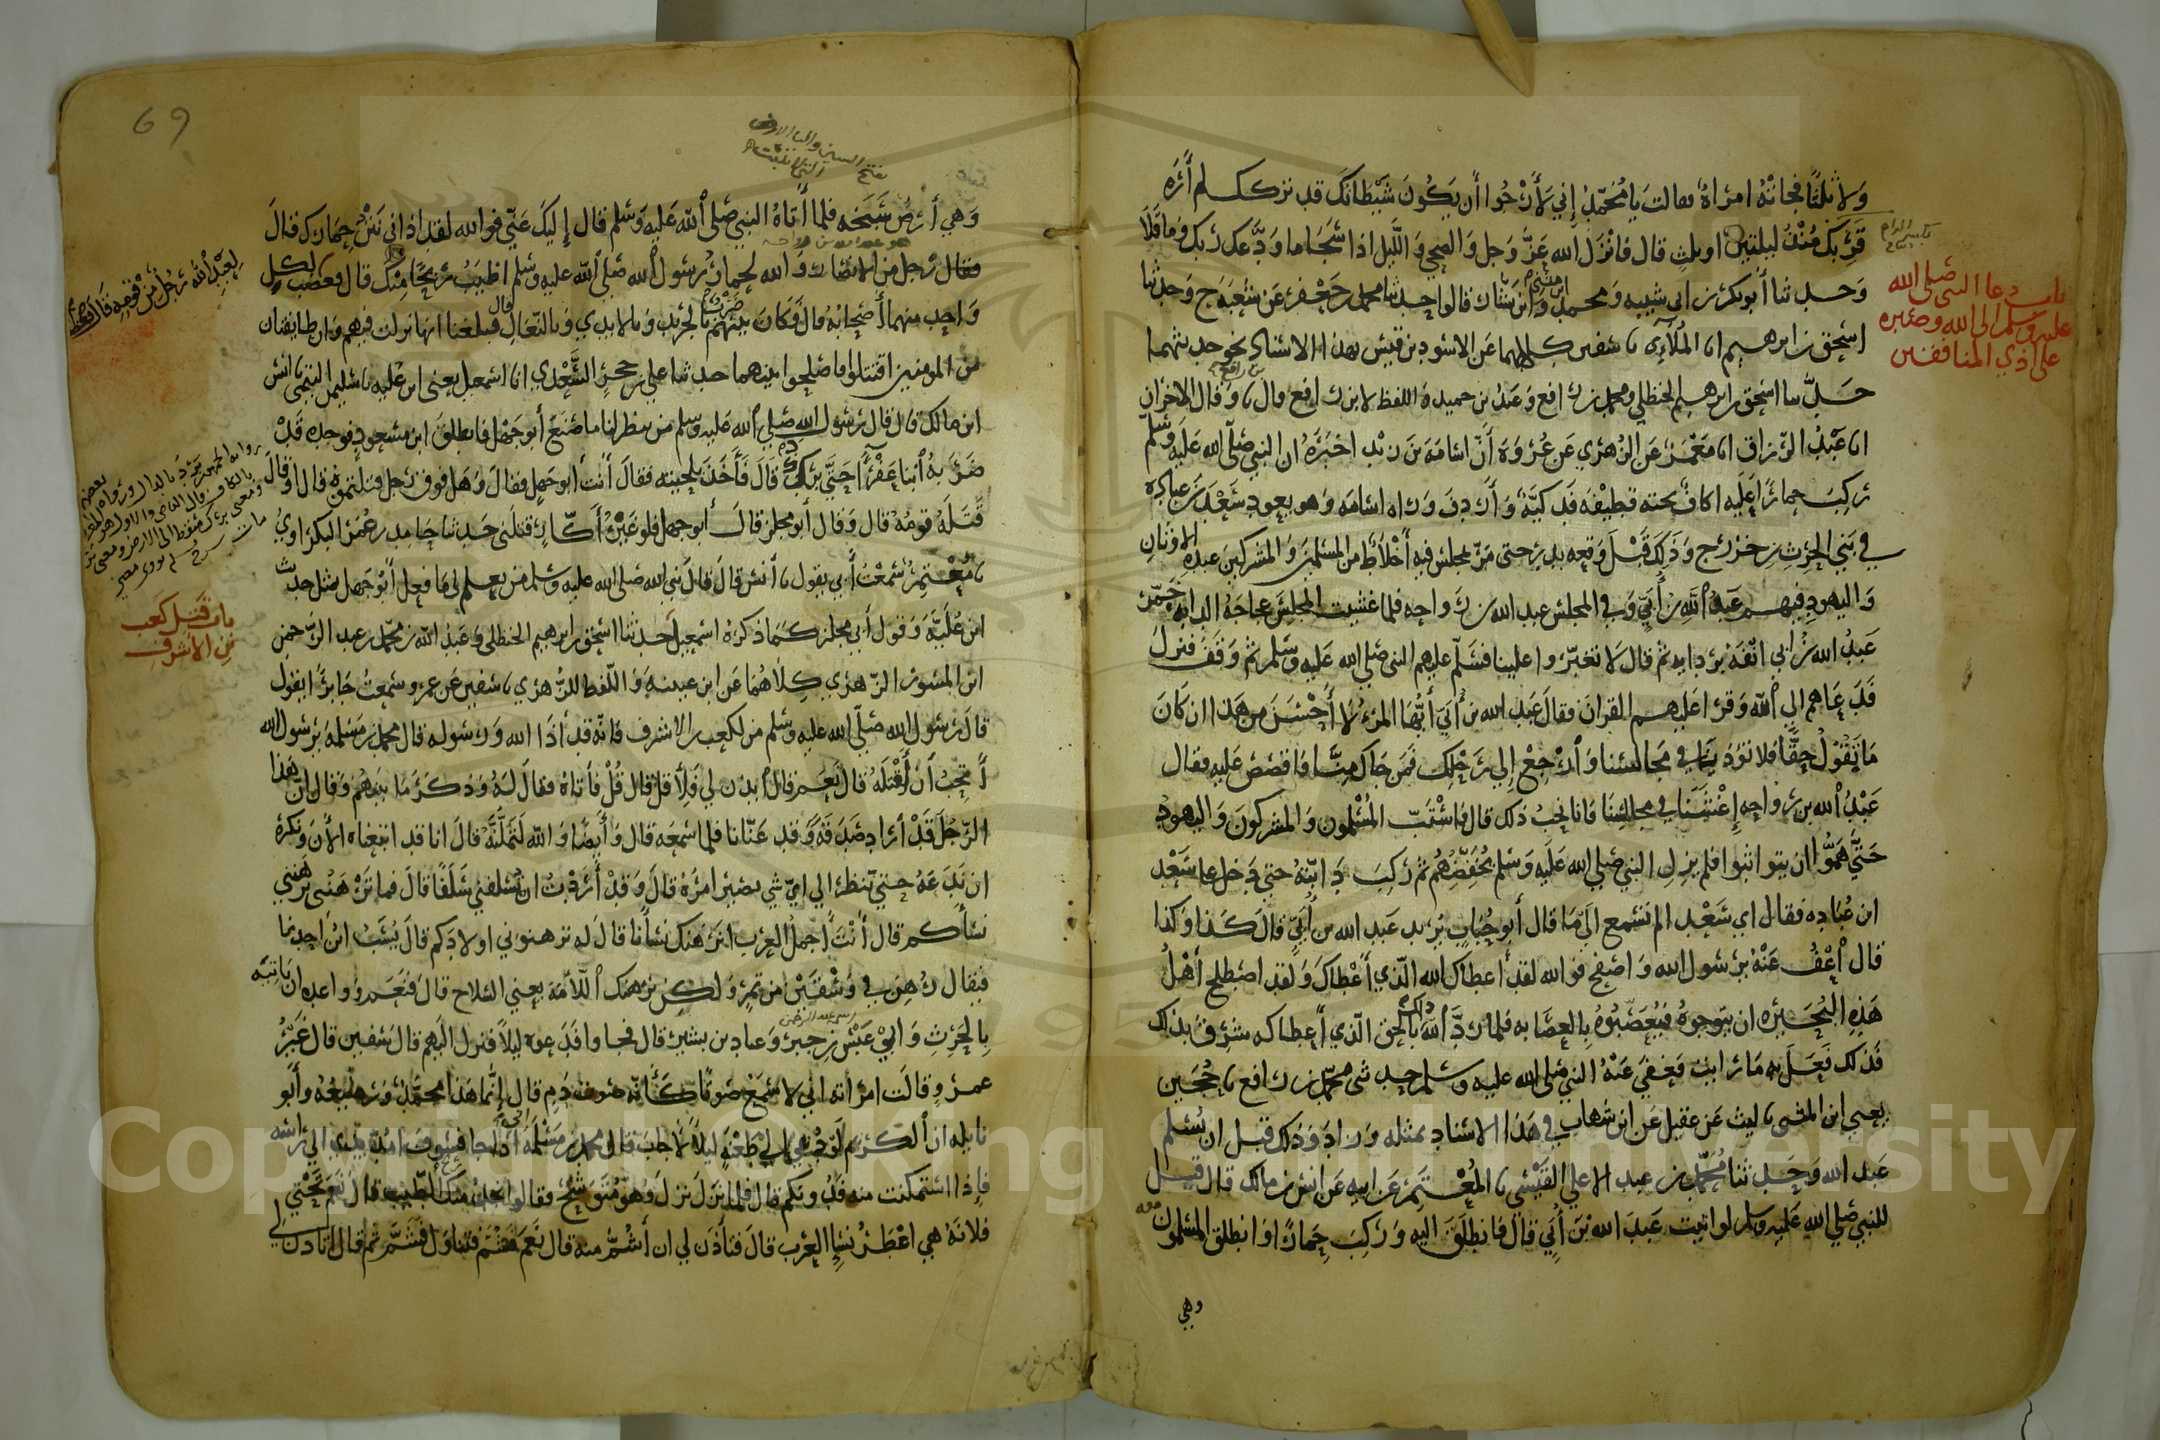 ولا ثلثا فجاته امراة فقالت يا محمد إني لأرجوا أن يكون شيطانك قد تركك لم أره
قربك منذ ليلتين او ثلث قال فانزل الله عز وجل والضحي والليل اذا سجا ما ودعك ربك وما قلا
وحدثنا أبو بكر بن ابي شيبه ومحمد بن المثني وابن بشار قالوا حدثنا محمد بن جعفر عن شعبة ح وحدثنا
اسحق بن ابرهيم انا الملائي نا سفين كلاهما عن الاسود بن قيس بهذا الاسناد نحو حديثهما
حدثنا اسحق بن ابرهيم الحنظلي ومحمد بن رافع وعبد بن حميد واللفظ لابن رافع قال نا وقال الاخران
انا عبد الرزاق انا معمر عن الزهري عن عروة أن اسامة بن زيد اخبره ان النبي صلى الله عليه وسلم
ركب حمارا عليه اكاف تحته قطيفه فدكية وأردف وراه اسامه وهو يعود سعد بن عباده
في بني الحرث بن خزرج وذلك قبل وقعه بدر حتى مر بمجلس فيه أخلاط من المسلمين والمشركين عبدة الاوثان
واليهود فيهم عبد الله بن أبي وفي المجلس عبد الله بن رواحه فلما غشيت المجلس عجاجة الدابه خمر
عبد الله بن أبي انفه بردايه ثم قال لا تغبروا علينا فسلم عليهم النبي صلى الله عليه وسلم ثم وقف فنزل
فدعاهم الي الله وقرا عليهم القران فقال عبد الله بن أبي أيها المرء لا أحسن من هذا ان كان
ما تقول حقا فلا تؤذينا في مجالسنا وارجع إلي رحلك فمن جاك منا فاقصص عليه فقال
عبد الله بن رواحه إغشنا في مجالسنا فانا نحب ذلك قال فاستب المسلمون والمشركون واليهود
حتى هموا ان يتواثبوا فلم يزل النبي صلى الله عليه وسلم يخفضهم ثم ركب دابته حتى دخل عا سعد
ابن عباده فقال اي سعد الم تسمع الى ما قال أبو حباب يريد عبد الله بن أبي قال كذا وكذا
قال اعف عنه يرسول الله واصفح فوالله لقد أعطاك الله الذي أعطاك ولقد اصطلح أهل
هذه البحيره ان يتوجوه فيعصبوه بالعصابه فلما رد الله ذلك بالحق الذي أعطاكه شرق بذلك
فذلك فعل به ما رايت فعفي عنه النبي صلى الله عليه وسلم حدثني محمد بن رافع نا حجين
يعني ابن المثنى نا ليث عن عقيل عن ابن شهاب في هذا الاسناد بمثله وزاد وذلك قبل ان يسلم
عبد الله وحدثنا محمد بن عبد الاعلي القيسي نا المعتمر عن ابيه عن انس بن مالك قال قيل
للنبي صلي الله عليه وسلم لو اتيت عبد الله بن أبي قال فانطلق اليه وركب حمارا وانطلق المسلمون معه
وهي
باب دعا النبي صلى الله
عليه وسلم الى الله وصبره
على اذي المنافقين
69
وهي أرض سبخه فلما أتاه النبي صلى الله عليه وسلم قال إليك عني فوالله لقد اذاني نتن حمارك قال
فقال رجل من الانصار والله لحمار رسول الله صلى الله عليه وسلم اطيب ريحا منك قال فغضب لكل
لعبد الله رجل من قومه قال فغضب
واحد منهما أصحابه قال فكان بينهم ضرب بالجريد وبالايدي وبالنعال قال فبلغنا انها نزلت فيهم وإن طايفتان
من المومنين اقتتلوا فاصلحوا بينهما حدثنا علي بن حجر السعدي انا اسمعيل يعني ابن علية نا سليمن التيمي نا انس
ابن مالك قال قال رسول الله صلى الله عليه وسلم من ينظر لنا ما صنع أبو جهل فانطلق ابن مسعود فوجده قد
ضربه أبنا عفرا حتى برك قال فأخذ بلحيته فقال أنت أبو جهل فقال وهل فوق رجل قتلتموه قال او قال
قتله قومه قال وقال أبو مجلز قال أبو جهل فلو غير أكار قتلني حدثنا حامد بن عمر البكراوي
نا معتمر سمعت أبي يقول نا أنس قال قال نبي الله صلى الله عليه وسلم من يعلم لي ما فعل أبو جهل بمثل حديث
ابن علية وقول أبي مجلز كما ذكره اسمعيل حدثنا اسحق بن ابرهيم الحنظلي وعبد الله بن محمد بن عبد الرحمن
ابن المسور الزهري كلاهما عن ابن عيينه واللفظ للزهري نا سفين عن عمرو سمعت جابرا يقول
قال رسول الله صلى الله عليه وسلم من لكعب بن الاشرف فانه قد أذا الله ورسوله قال محمد بن مسلمة يرسول الله
أتحب أن أقتله قال نعم قال ايذن لي فلأقل قال قل فأتاه فقال له وذكر ما بينهم وقال ان هذا
الرجل قد أراد صدقة وقد عنانا فلما سمعه قال وأيضا والله لتملنه قال انا قد اتبعناه الأن ونكره
ان ندعه حتي ننظر الي اي شي يصير امره قال وقد أردت ان تسلفني سلفا قال فما ترهنني ترهنني
نسأكم قال أنت أجمل العرب انرهنك نسأنا قال له ترهنوني اولادكم قال يسب ابن احدنا
فيقال رهن في وسقين من تمر ولكن نرهنك اللأمة يعني السلاح قال فنعم وواعده ان ياتيه
بالحرث وابي عبس بن جبر وعباد بن بشير قال فجاوا فدعوه ليلا فنزل اليهم قال سفين قال غير
عمرو قالت امراته اني لاسمع صوتا كأنه صوت دم قال إنما هذا محمد ورضيعه وأبو
نايله ان الكريم لو دعي إلي طعنة ليلا لأجاب قال محمد بن مسلمة اني إذا جا فسوف امد يدي الي راسه
فإذا استمكنت منه فدونكم قال فلما نزل نزل وهو متوشح فقالوا نجد منك الطيب قال نعم تحتي
فلانة هي اعطر نسا العرب قال فتأذن لي ان أشم منه قال نعم فشم فتناول فشم ثم قال اتاذن لي
باب قتل كعب
بن الأشرف
Copyright © King Saud University